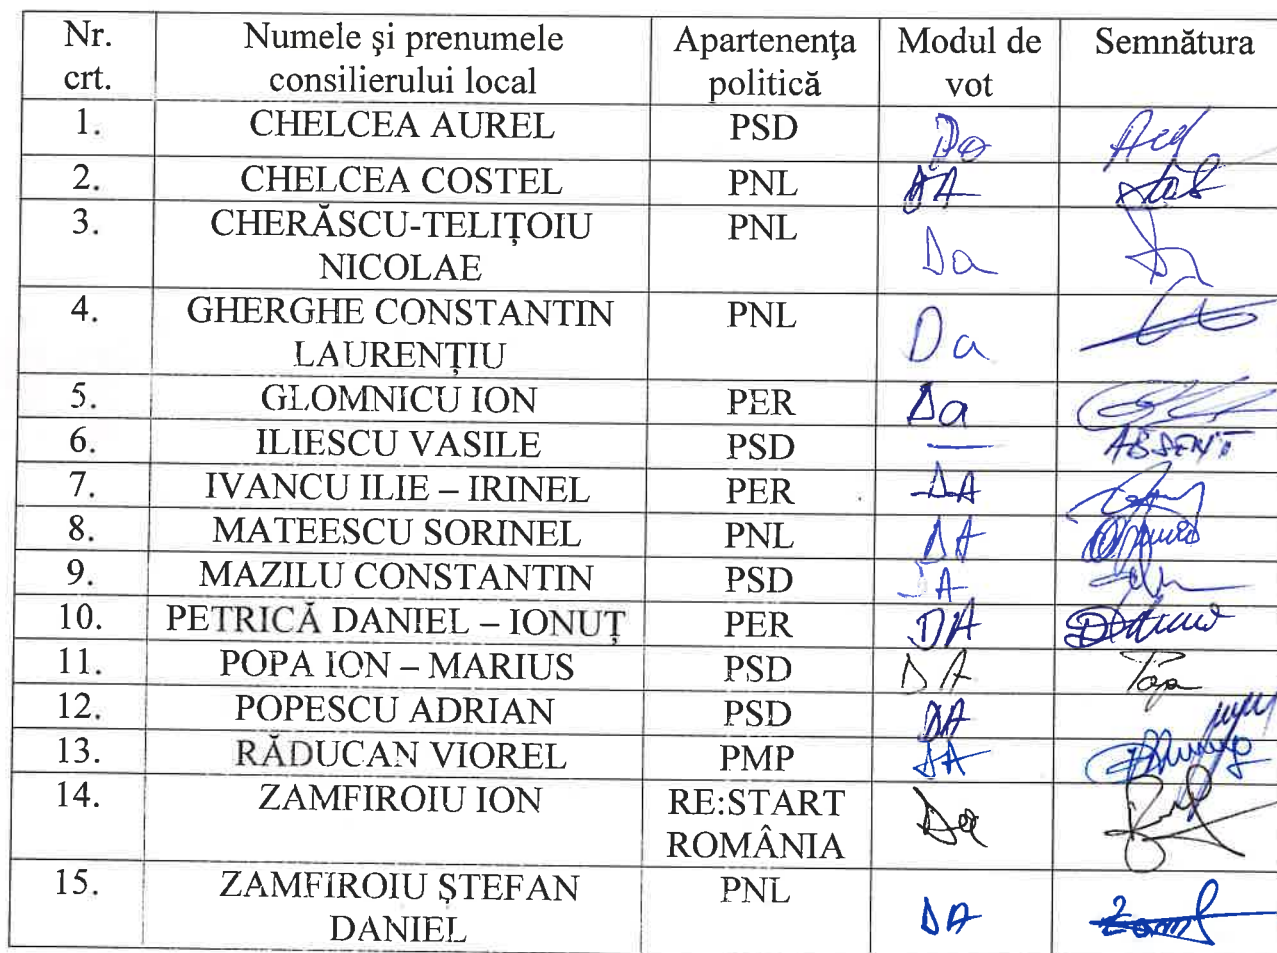 Nr. crt. Numele și prenumele consilierului local Apartenența politică Modul de vot Semnătura
1. CHELCEA AUREL PSD Da
2. CHELCEA COSTEL PNL DA
3. CHERĂSCU-TELIȚOIU NICOLAE PNL Da
4. GHERGHE CONSTANTIN LAURENȚIU PNL Da
5. GLOMNICU ION PER Da
6. ILIESCU VASILE PSD — ABSENT
7. IVANCU ILIE – IRINEL PER DA
8. MATEESCU SORINEL PNL DA
9. MAZILU CONSTANTIN PSD DA
10. PETRICĂ DANIEL – IONUȚ PER DA
11. POPA ION – MARIUS PSD DA Popa
12. POPESCU ADRIAN PSD DA
13. RĂDUCAN VIOREL PMP DA
14. ZAMFIROIU ION RE:START ROMÂNIA Da
15. ZAMFIROIU ȘTEFAN DANIEL PNL DA